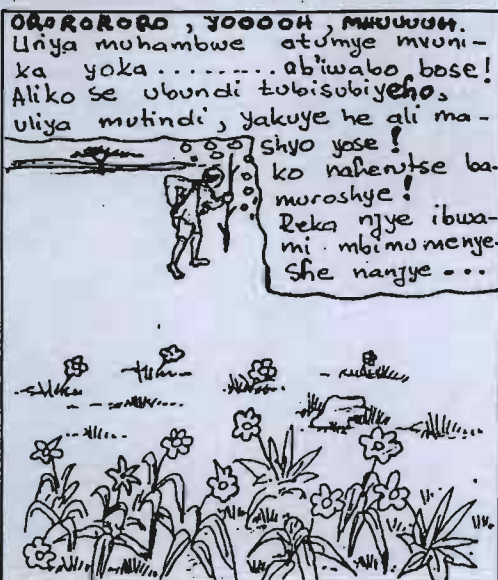 ORORORORO, YOOOOH, MHUUUUH.
Uriya muhambwe atumye mvuni-
ka yoka ......... ab'iwabo bose!
Aliko se ubundi tubisubiyeho,
uliya mutindi, yakuye he ali ma-
shyo yose!
ko naherutse ba-
muroshye!
Reka njye ibwa-
mi mbimumenye-
she nanjye ...